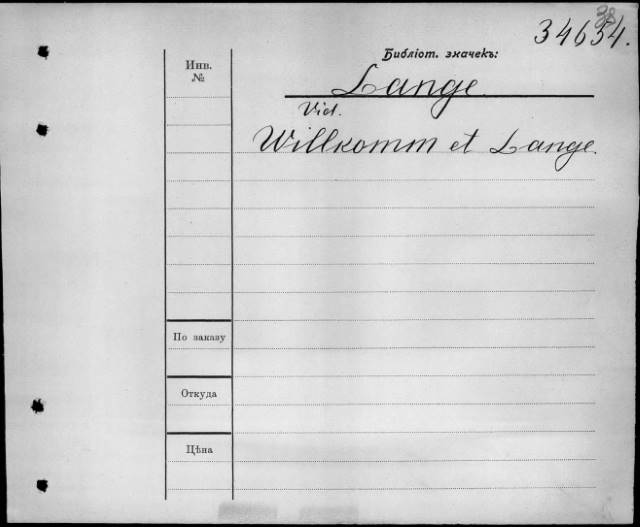 38
34654.
Библіот. значекъ:
Инв.
№
Lange.
Vid.
Willkomm et Lange.
По заказу
Откуда
Цѣна